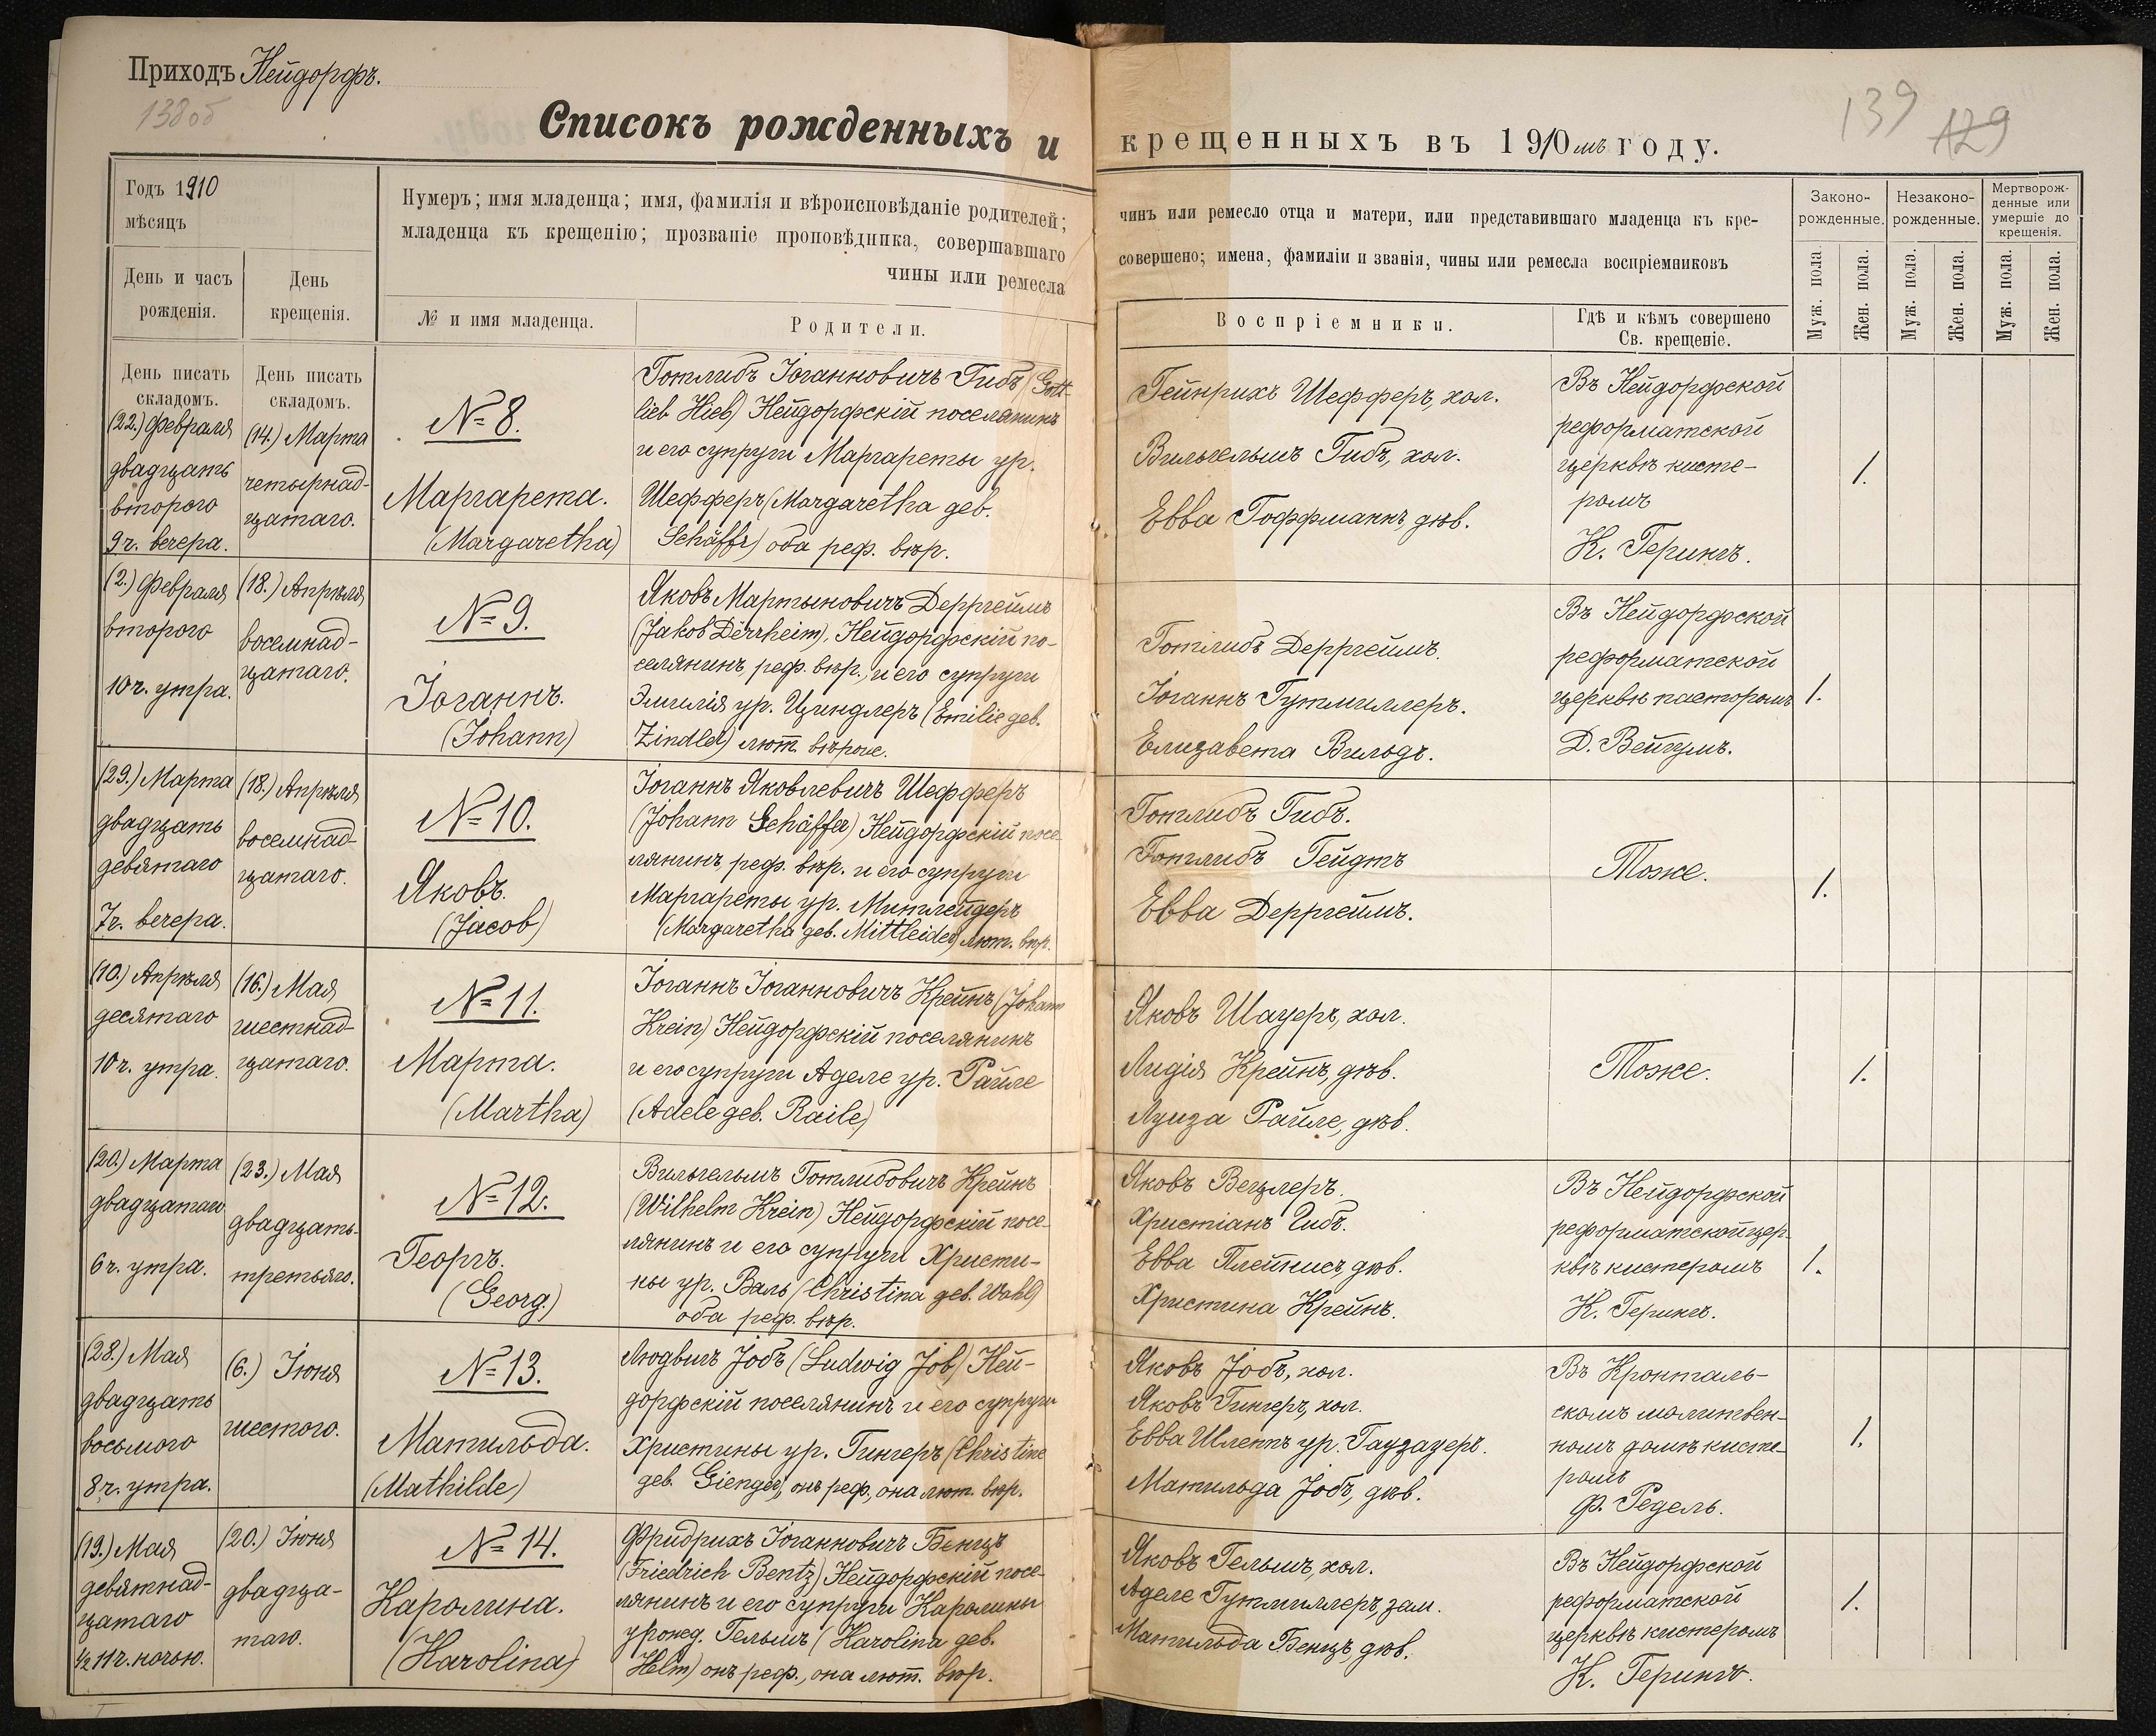 Приходъ Нейдорфъ.
138об
139
129
Списокъ рожденныхъ и крещенныхъ въ 1910мъ году.
Годъ 1910
мѣсяцъ
День и часъ
рожденія.
День
крещенія.
Нумеръ; имя младенца; имя, фамилія и вѣроисповѣданіе родителей;
младенца къ крещенію; прозваніе проповѣдника, совершавшаго
чины или ремесла
№ и имя младенца.
Родители.
чинъ или ремесло отца и матери, или представившаго младенца къ кре-
совершено; имена, фамиліи и званія, чины или ремесла воспріемниковъ
Воспріемники.
Гдѣ и кѣмъ совершено
Св. крещеніе.
Законо-
рожденные.
Незаконо-
рожденные.
Мертворож-
денные или
умершіе до
крещенія.
Муж. пола.
Жен. пола.
Муж. пола.
Жен. пола.
Муж. пола.
Жен. пола.
День писать
складомъ.
День писать
складомъ.
(22.) Февраля
двадцать
второго
9 ч. вечера.
(14.) Марта
четырнад-
цатаго.
№ 8.
Маргарета.
(Margaretha)
Готлибъ Іоганновичъ Гибъ (Gott-
lieb Hieb) Нейдорфскій поселянинъ
и его супруги Маргареты ур.
Шефферъ (Margaretha geb.
Schäffer) оба реф. вѣр.
Гейнрихъ Шефферъ, хол.
Вильгельмъ Гибъ, хол.
Евва Гоффманнъ, дѣв.
Въ Нейдорфской
реформатской
церквѣ кисте-
ромъ
К. Герингъ.
1.
(2.) Февраля
второго
10 ч. утра.
(18.) Апрѣля
восемнад-
цатаго.
№ 9.
Іоганнъ.
(Johann)
Яковъ Мартыновичъ Дерргеймъ
(Jakob Dërrheim), Нейдорфскій по-
селянинъ, реф. вѣр., и его супруги
Эмилія ур. Циндлеръ (Emilie geb.
Zindler) лют. вѣроис.
Готлибъ Деррgеймъ.
Іоганнъ Гутмиллеръ.
Елизавета Вильдъ.
Въ Нейдорфской
реформатской
церквѣ пасторомъ
Д. Вейгумъ.
1.
(29.) Марта
двадцать
девятаго
7 ч. вечера.
(18.) Апрѣля
восемнад-
цатаго.
№ 10.
Яковъ.
(Jacob)
Іоганнъ Яковлевичъ Шефферъ
(Johann Schäffer) Нейдорфскій посе-
лянинъ, реф. вѣр. и его супруги
Маргареты ур. Митлейдеръ
(Margaretha geb. Mittleider) лют. вѣр.
Готлибъ Гибъ.
Готлибъ Гейдтъ
Евва Дерргеймъ.
Тоже.
1.
(10.) Апрѣля
десятаго
10 ч. утра.
(16.) Мая
шестнад-
цатаго.
№ 11.
Марта.
(Martha)
Іоганнъ Іоганновичъ Крейнъ (Johann
Krein) Нейдорфскій поселянинъ
и его супруги Аделе ур. Райле
(Adele geb. Raile)
Яковъ Шауеръ, хол.
Лидія Крейнъ, дѣв.
Луиза Райле, дѣв.
Тоже.
1.
(20.) Марта
двадцатаго
6 ч. утра.
(23.) Мая
двадцать-
третьяго.
№ 12.
Георгъ.
(Georg.)
Вильгельмъ Готлибовичъ Крейнъ
(Wilhelm Krein) Нейдорфскій посе-
лянинъ и его супруги Христи-
ны ур. Валь (Christina geb. Wahl)
оба реф. вѣр.
Яковъ Вецлеръ.
Христіанъ Гибъ.
Евва Плейнисъ, дѣв.
Христина Крейнъ.
Въ Нейдорфской
реформатской цер-
квѣ кистеромъ
К. Герингъ.
1.
(28.) Мая
двадцать
восьмого
8 ч. утра.
(6.) Іюня
шестого.
№ 13.
Матильда.
(Mathilde)
Людвигъ Јобъ (Ludwig Job) Ней-
дорфскій поселянинъ и его супруги
Христины ур. Гингеръ (Christine
geb. Gienger), онъ реф., она лют. вѣр.
Яковъ Јобъ, хол.
Яковъ Гингеръ, хол.
Евва Шлеппъ ур. Гаузауеръ.
Матильда Јобъ, дѣв.
Въ Кронталь-
скомъ молитвен-
номъ домѣ кисте-
ромъ
Ф. Редель.
1.
(19.) Мая
девятнад-
цатаго
½ 11 ч. ночью.
(20.) Іюня
двадца-
таго.
№ 14.
Каролина.
(Karolina)
Фридрихъ Іоганновичъ Бенцъ
(Friedrich Bentz) Нейдорфскій посе-
лянинъ и его супруги Каролины
урожд. Гельмъ (Karolina geb.
Helm) онъ реф., она лют. вѣр.
Яковъ Гельмъ, хол.
Аделе Гутмиллеръ, зам.
Матильда Бенцъ, дѣв.
Въ Нейдорфской
реформатской
церквѣ кистеромъ
К. Герингъ.
1.